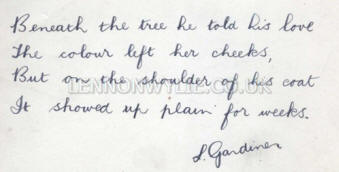 Beneath the tree he told his love
The colour left her cheeks,
But on the shoulder of his coat
LENNONWYLIE.CO.UK
It showed up plain for weeks.
L. Gardiner